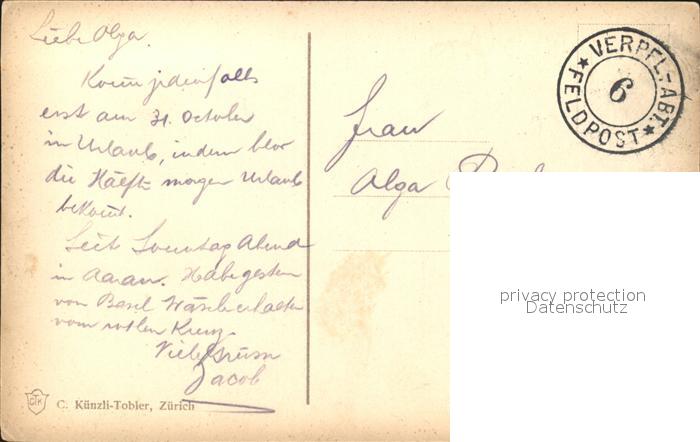 Liebe Olga.
Kom jedenfalls
erst am 31. October
in Urlaub, indem blos
die Hälfte morgen Urlaub
bekomt.
Seit Sonntag Abend
in Aarau. Habe gestern
von Basel Wäsche erhalten
vom roten Kreuz.
Viele Grüsse
Jacob
CTK
C. Künzli-Tobler, Zürich
Frau
Olga
VERPFL.-ABT.
6
★ FELDPOST ★
privacy protection
Datenschutz